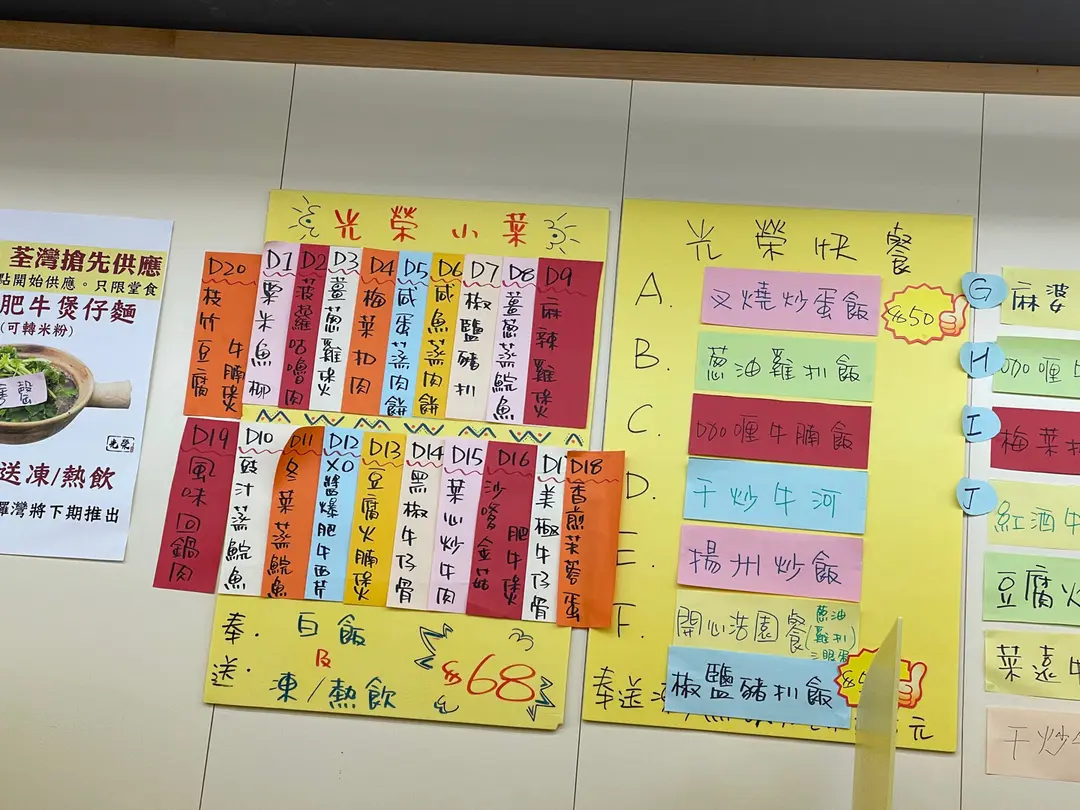 荃灣搶先供應
點開始供應。只限堂食
肥牛煲仔麵
(可轉米粉)
送凍/熱飲
灣將下期推出
光榮小菜
D20 枝竹豆腐牛腩煲
D1 粟米魚柳
D2 菠蘿咕嚕肉
D3 薑蔥雞煲
D4 梅菜扣肉
D5 咸蛋蒸肉餅
D6 咸魚蒸肉餅
D7 椒鹽豬扒
D8 薑蔥蒸鯇魚
D9 麻辣雞煲
D19 風味回鍋肉
D10 豉汁蒸鯇魚
D11 冬菜蒸鯇魚
D12 XO醬爆肥牛西芹
D13 豆腐火腩煲
D14 黑椒牛仔骨
D15 菜心炒牛肉
D16 沙嗲金菇肥牛煲
D17 美極牛仔骨
D18 香煎芙蓉蛋
奉送.
白飯
及
凍/熱飲
$68
光榮快餐
A. 叉燒炒蛋飯
$50
B. 蔥油雞扒飯
C. 咖喱牛腩飯
D. 干炒牛河
E. 揚州炒飯
F. 開心浩園餐(蔥油雞扒
椒鹽豬扒飯
奉送
元
G 麻婆
H 咖喱
I 梅菜扣
J 紅酒牛
豆腐火
菜遠牛
干炒牛